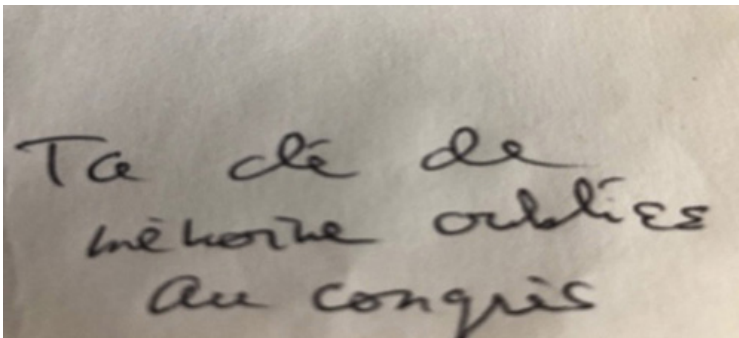 Ta clé de
mémoire oubliée
au congrès